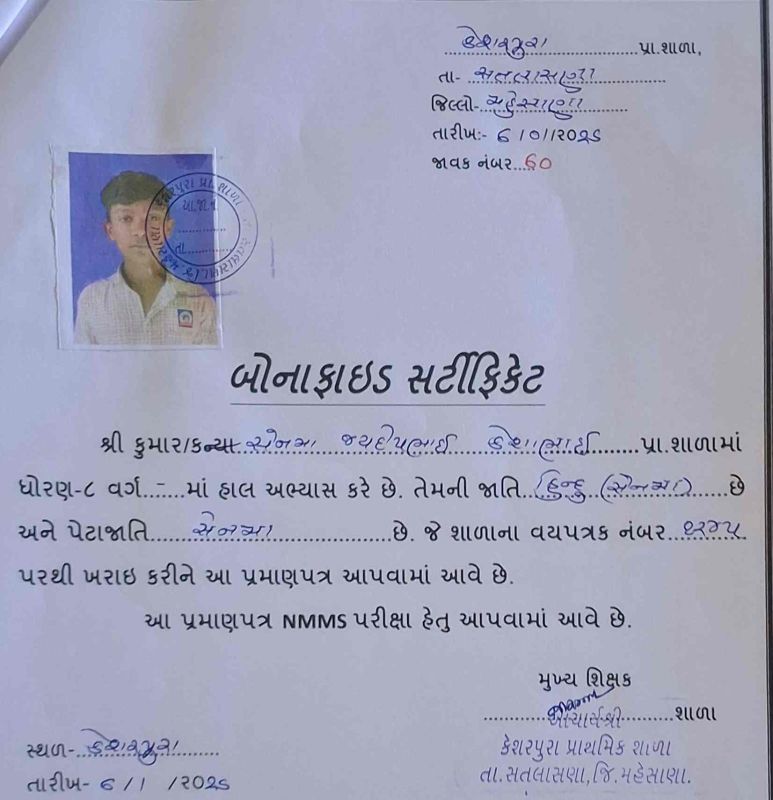 કેશરપુરા પ્રા.શાળા,
તા- સતલાસણા
જિલ્લો- મહેસાણા
તારીખ:- ૬/૦૧/૨૦૨૬
જાવક નંબર...૬૦
કેશરપુરા પ્રા.શાળા
તા.
બોનાફાઇડ સર્ટીફિકેટ
શ્રી કુમાર/કન્યા સેનમા જયદીપભાઈ કેશાભાઈ પ્રા.શાળામાં
ધોરણ-૮ વર્ગ - માં હાલ અભ્યાસ કરે છે. તેમની જાતિ હિન્દુ (સેનમા) છે
અને પેટાજાતિ સેનમા છે. જે શાળાના વયપત્રક નંબર
પરથી ખરાઇ કરીને આ પ્રમાણપત્ર આપવામાં આવે છે.
આ પ્રમાણપત્ર NMMS પરીક્ષા હેતુ આપવામાં આવે છે.
મુખ્ય શિક્ષક
આચાર્યશ્રી શાળા
કેશરપુરા પ્રાથમિક શાળા
તા.સતલાસણા,જિ.મહેસાણા.
સ્થળ- કેશરપુરા
તારીખ- ૬/૧ /૨૦૨૬